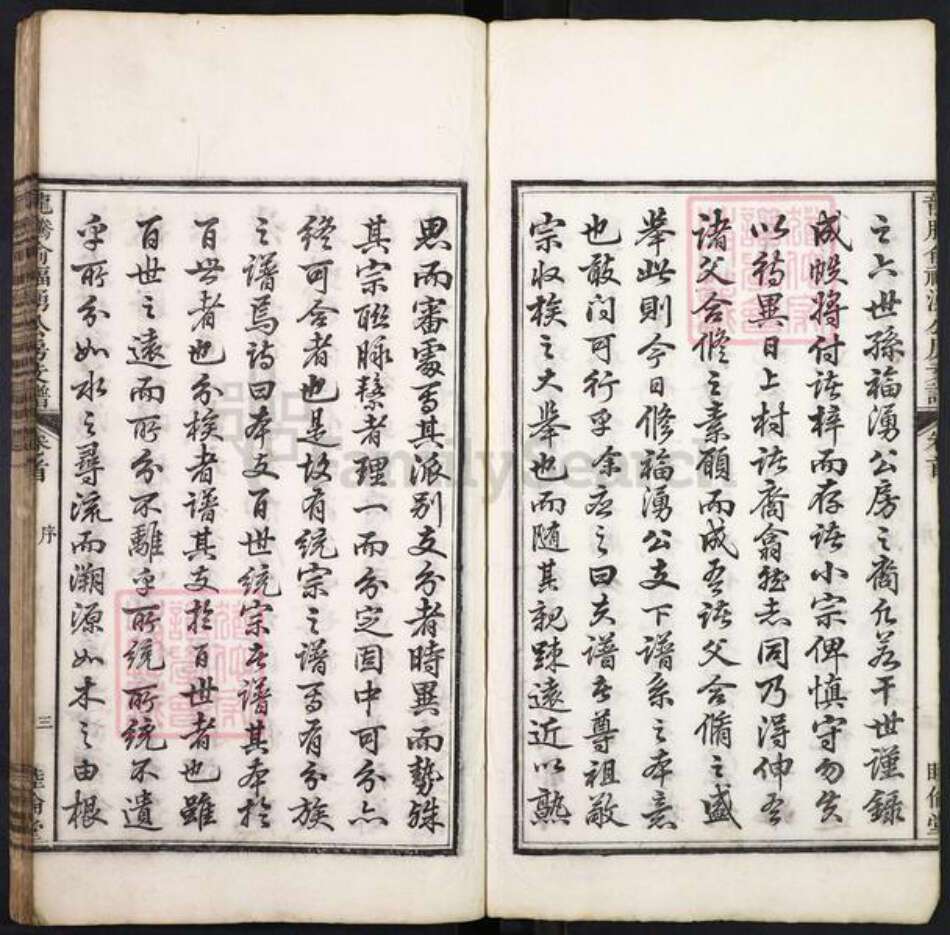 之六世孫福湧公房之裔凡若干世謹錄
成帙將付諸梓而存諸小宗俾慎守勿失
以待異日上村諸裔翕然志同乃得伸吾
諸父合修之素願而成吾諸父合脩之盛
舉此則今日修福湧公支下譜系之本意
也敢问可行乎余應之曰夫譜者尊祖敬
宗收族之大舉也而隨其親踈遠近以熟
思而審處焉其派别支分者時異而勢殊
其宗聮脉繫者理一而分定固中可分亦
終可合者也是故有統宗之譜焉有分族
之譜焉詩曰本支百世統宗者譜其本於
百世者也分族者譜其支於百世者也雖
百世之遠而所分不離乎所統所統不遺
乎所分如水之尋流而溯源如木之由根
龍騰俞福湧公房支譜
卷首
序
三
睦倫堂
FamilySearch